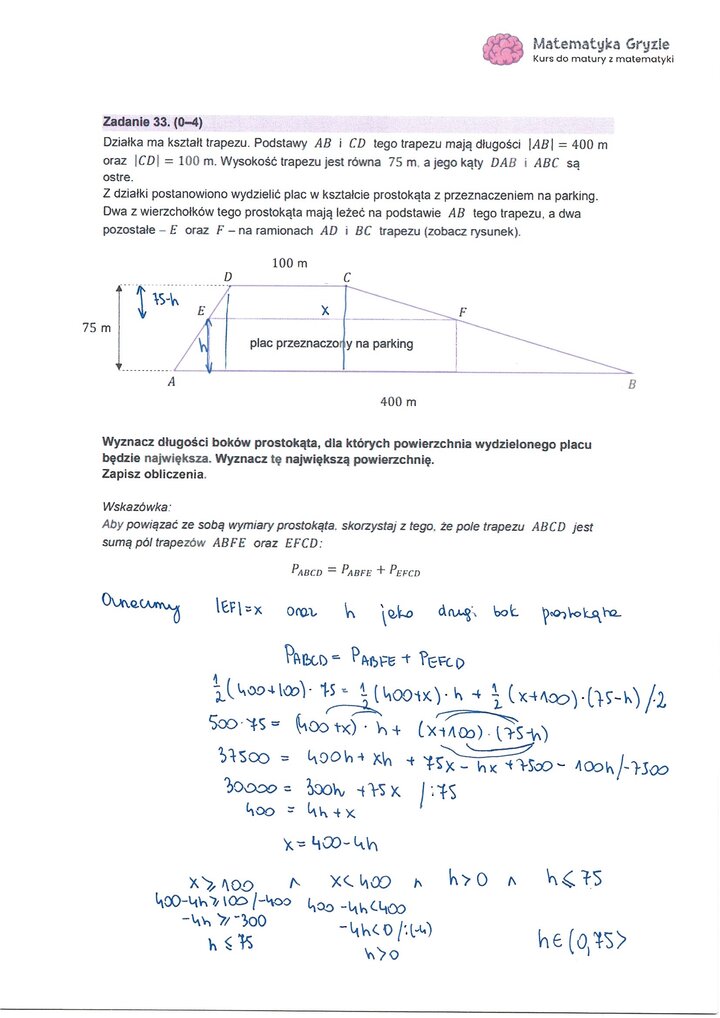 Matematyka Gryzie
Kurs do matury z matematyki
Zadanie 33. (0–4)
Działka ma kształt trapezu. Podstawy AB i CD tego trapezu mają długości |AB| = 400 m
oraz |CD| = 100 m. Wysokość trapezu jest równa 75 m. a jego kąty DAB i ABC są
ostre.
Z działki postanowiono wydzielić plac w kształcie prostokąta z przeznaczeniem na parking.
Dwa z wierzchołków tego prostokąta mają leżeć na podstawie AB tego trapezu, a dwa
pozostałe – E oraz F – na ramionach AD i BC trapezu (zobacz rysunek).
100 m
D C
75-h
E x F
75 m
h plac przeznaczony na parking
A B
400 m
Wyznacz długości boków prostokąta, dla których powierzchnia wydzielonego placu
będzie największa. Wyznacz tę największą powierzchnię.
Zapisz obliczenia.
Wskazówka:
Aby powiązać ze sobą wymiary prostokąta. skorzystaj z tego, że pole trapezu ABCD jest
sumą pól trapezów ABFE oraz EFCD:
P_ABCD = P_ABFE + P_EFCD
Oznaczmy |EF|=x oraz h jako drugi bok prostokąta
P_ABCD = P_ABFE + P_EFCD
1/2 (400+100)· 75 = 1/2 (400+x)· h + 1/2 (x+100)·(75-h) /·2
500·75 = (400+x)· h + (x+100)·(75-h)
37500 = 400h + xh + 75x - hx + 7500 - 100h /-7500
30000 = 300h + 75x /:75
400 = 4h + x
x = 400-4h
x ⩾ 100 ∧ x < 400 ∧ h > 0 ∧ h ⩽ 75
400-4h ⩾ 100 /-400 400 -4h < 400
-4h ⩾ -300 -4h < 0 /:(-4)
h ⩽ 75 h > 0 h ∈ (0,75>